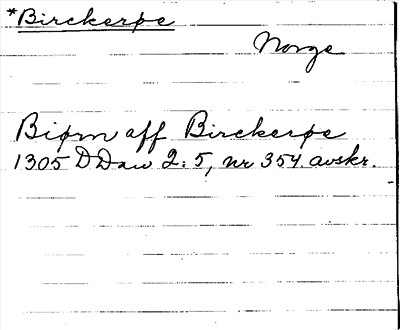 *Birckerøe
Norge
Biørn aff Birckerøe
1305 DDaw 2:5, nr 354. avskr.